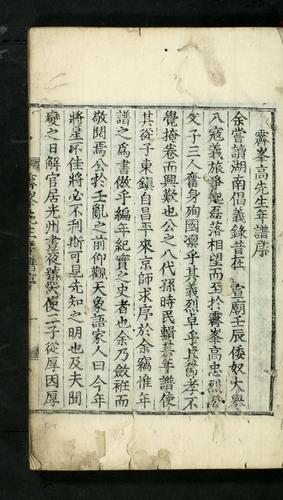 霽峯高先生年譜序
余嘗讀湖南倡義錄昔在 宣廟壬辰倭奴大舉
入寇義旅爭起磊落相望而至於霽峯高忠烈公
父子三人奮身殉國凜乎其義烈卓乎其節孝不
覺掩卷而興歎也公之八代孫時民輯其年譜使
其從子東鎮自昌平來京師求序於余竊惟年
譜之爲書倣乎編年紀實之史者也余乃斂袵而
敬閱焉公於壬亂之前仰觀天象語家人曰今年
將星不佳將必不利斯可見先知之明也及夫聞
變之日解官居光州晝夜號哭使二子從厚因厚
霽峯先生年譜序